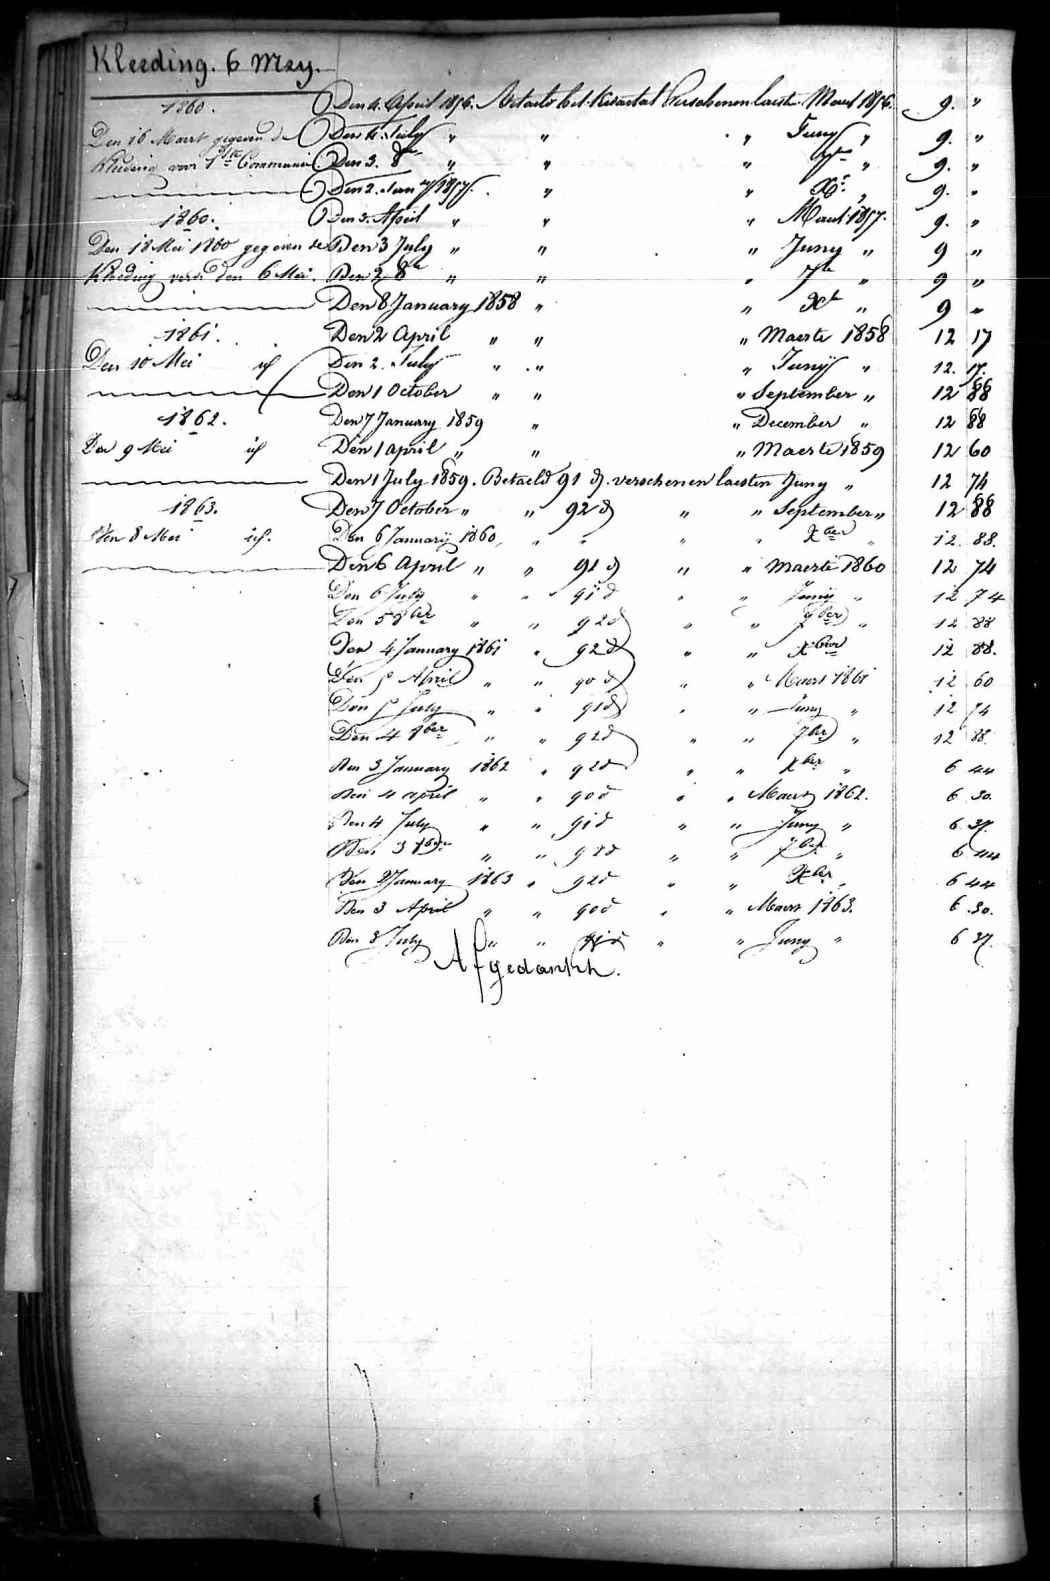 Kleeding. 6 Mey.
1860.
Den 16 Maert gegeven de
Kleeding voor 1ste Communie.
1860.
Den 18 Mei 1860 gegeven de
Kleeding voor den 6 Mei.
1861.
Den 10 Mei id
1862.
Den 9 Mei id
1863.
Den 8 Mei id.
Den 4 April 1856. Betaelt het Kwartal Verschenen laeste Maert 1856. 9. "
Den 4 July " " " Juny " 9. "
Den 3. 8er " " " 7er " 9. "
Den 2. Jan 1857. " " Xr. " 9. "
Den 3. April " " " Maert 1857. 9. "
Den 3 July " " " Juny " 9 "
Den 2 8er " " " 7er " 9 "
Den 8 January 1858 " " Xer " 9 "
Den 2 April " " " Maerte 1858 12 17
Den 2. July " " " Junÿ " 12. 17.
Den 1 October " " " September " 12 88
Den 7 January 1859 " " December " 12 88
Den 1 april " " " Maerte 1859 12 60
Den 1 July 1859. Betaeld 91 d. verschenen laesten Juny " 12 74
Den 7 October " " 92 d " " September " 12 88
Den 6 Januarÿ 1860 " " " " Xber " 12. 88.
Den 6 April " " 91 d " " Maerte 1860 12 74
Den 6 July " " 91 d " " Juny " 12 74
Den 5 8ber " " 92 d " " 7ber " 12 88
Den 4 January 1861 " 92 d " " Xber 12 88.
Den 5 April " " 90 d " " Maert 1861 12 60
Den 5 July " " 91 d " " Juny " 12 74
Den 4 8ber " " 92 d " " 7ber " 12 88.
Den 3 January 1862 " 92 d " " Xber " 6 44
Den 4 april " " 90 d " " Maert 1862. 6 30.
Den 4 July " " 91 d " " Juny " 6 37.
Den 3 8ber " " 92 d " " 7ber " 6 44
Den 2 January 1863 " 92 d " " Xber " 6 44
Den 3 April " " 90 d " " Maert 1863. 6 30.
Den 3 July " " 91 d " " Juny " 6 37.
Afgedankh.